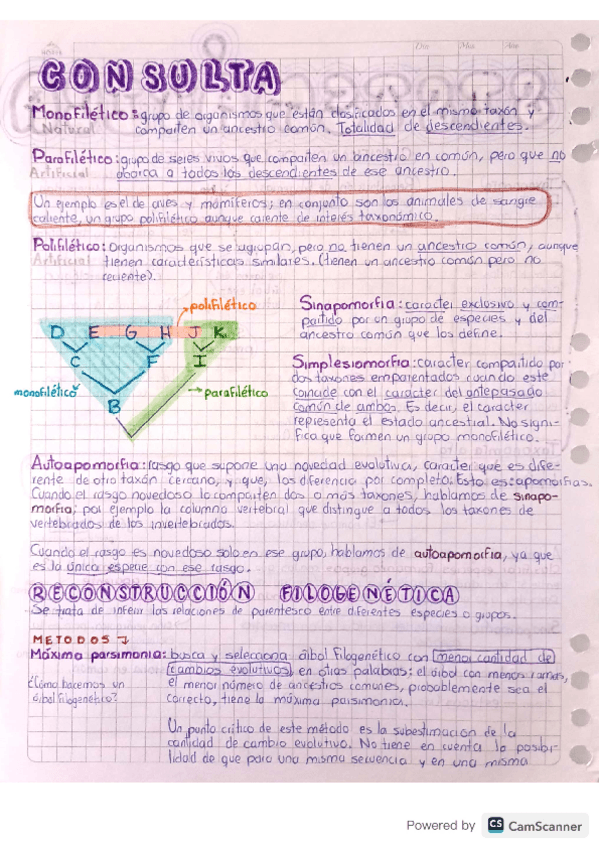 CONSULTA
Monofilético: grupo de organismos que están clasificados en el mismo taxón y
Natural comparten un ancestro común. Totalidad de descendientes.
Parafilético: grupo de seres vivos que comparten un ancestro en común, pero que no
Artificial abarca a todos los descendientes de ese ancestro.
Un ejemplo es el de aves y mamíferos; en conjunto son los animales de sangre
caliente, un grupo polifilético aunque carente de interés taxonómico.
Polifilético: Organismos que se agrupan, pero no tienen un ancestro común, aunque
Artificial tienen características similares. (tienen un ancestro común pero no
reciente).
polifilético
D E G H J K
C F I
monofilético
parafilético
B
Sinapomorfia: caracter exclusivo y com-
partido por un grupo de especies y del
ancestro común que los define.
Simplesiomorfia: caracter compartido por
dos taxones emparentados cuando este
coincide con el caracter del antepasado
común de ambos. Es decir, el caracter
representa el estado ancestral. No signi-
fica que formen un grupo monofilético.
Autoapomorfia: rasgo que supone una novedad evolutiva, caracter que es dife-
rente de otro taxón cercano, y que, los diferencia por completo. Esto es: apomorfias.
Cuando el rasgo novedoso lo comparten dos o más taxones, hablamos de sinapo-
morfia; por ejemplo la columna vertebral que distingue a todos los taxones de
vertebrados de los invertebrados.
Cuando el rasgo es novedoso solo en ese grupo, hablamos de autoapomorfia, ya que
es la única especie con ese rasgo.
RECONSTRUCCIÓN FILOGENÉTICA
- Se trata de inferir las relaciones de parentesco entre diferentes especies o grupos.
METODOS
Máxima parsimonia: busca y selecciona árbol filogenético con menor cantidad de
cambios evolutivos, en otras palabras: el árbol con menos ramas,
¿Cómo hacemos un el menor número de ancestros comunes, probablemente sea el
árbol filogenético? correcto, tiene la máxima parsimonia.
Un punto crítico de este método es la subestimación de la
cantidad de cambio evolutivo. No tiene en cuenta la posibi-
lidad de que para una misma secuencia y en una misma
Powered by CS CamScanner